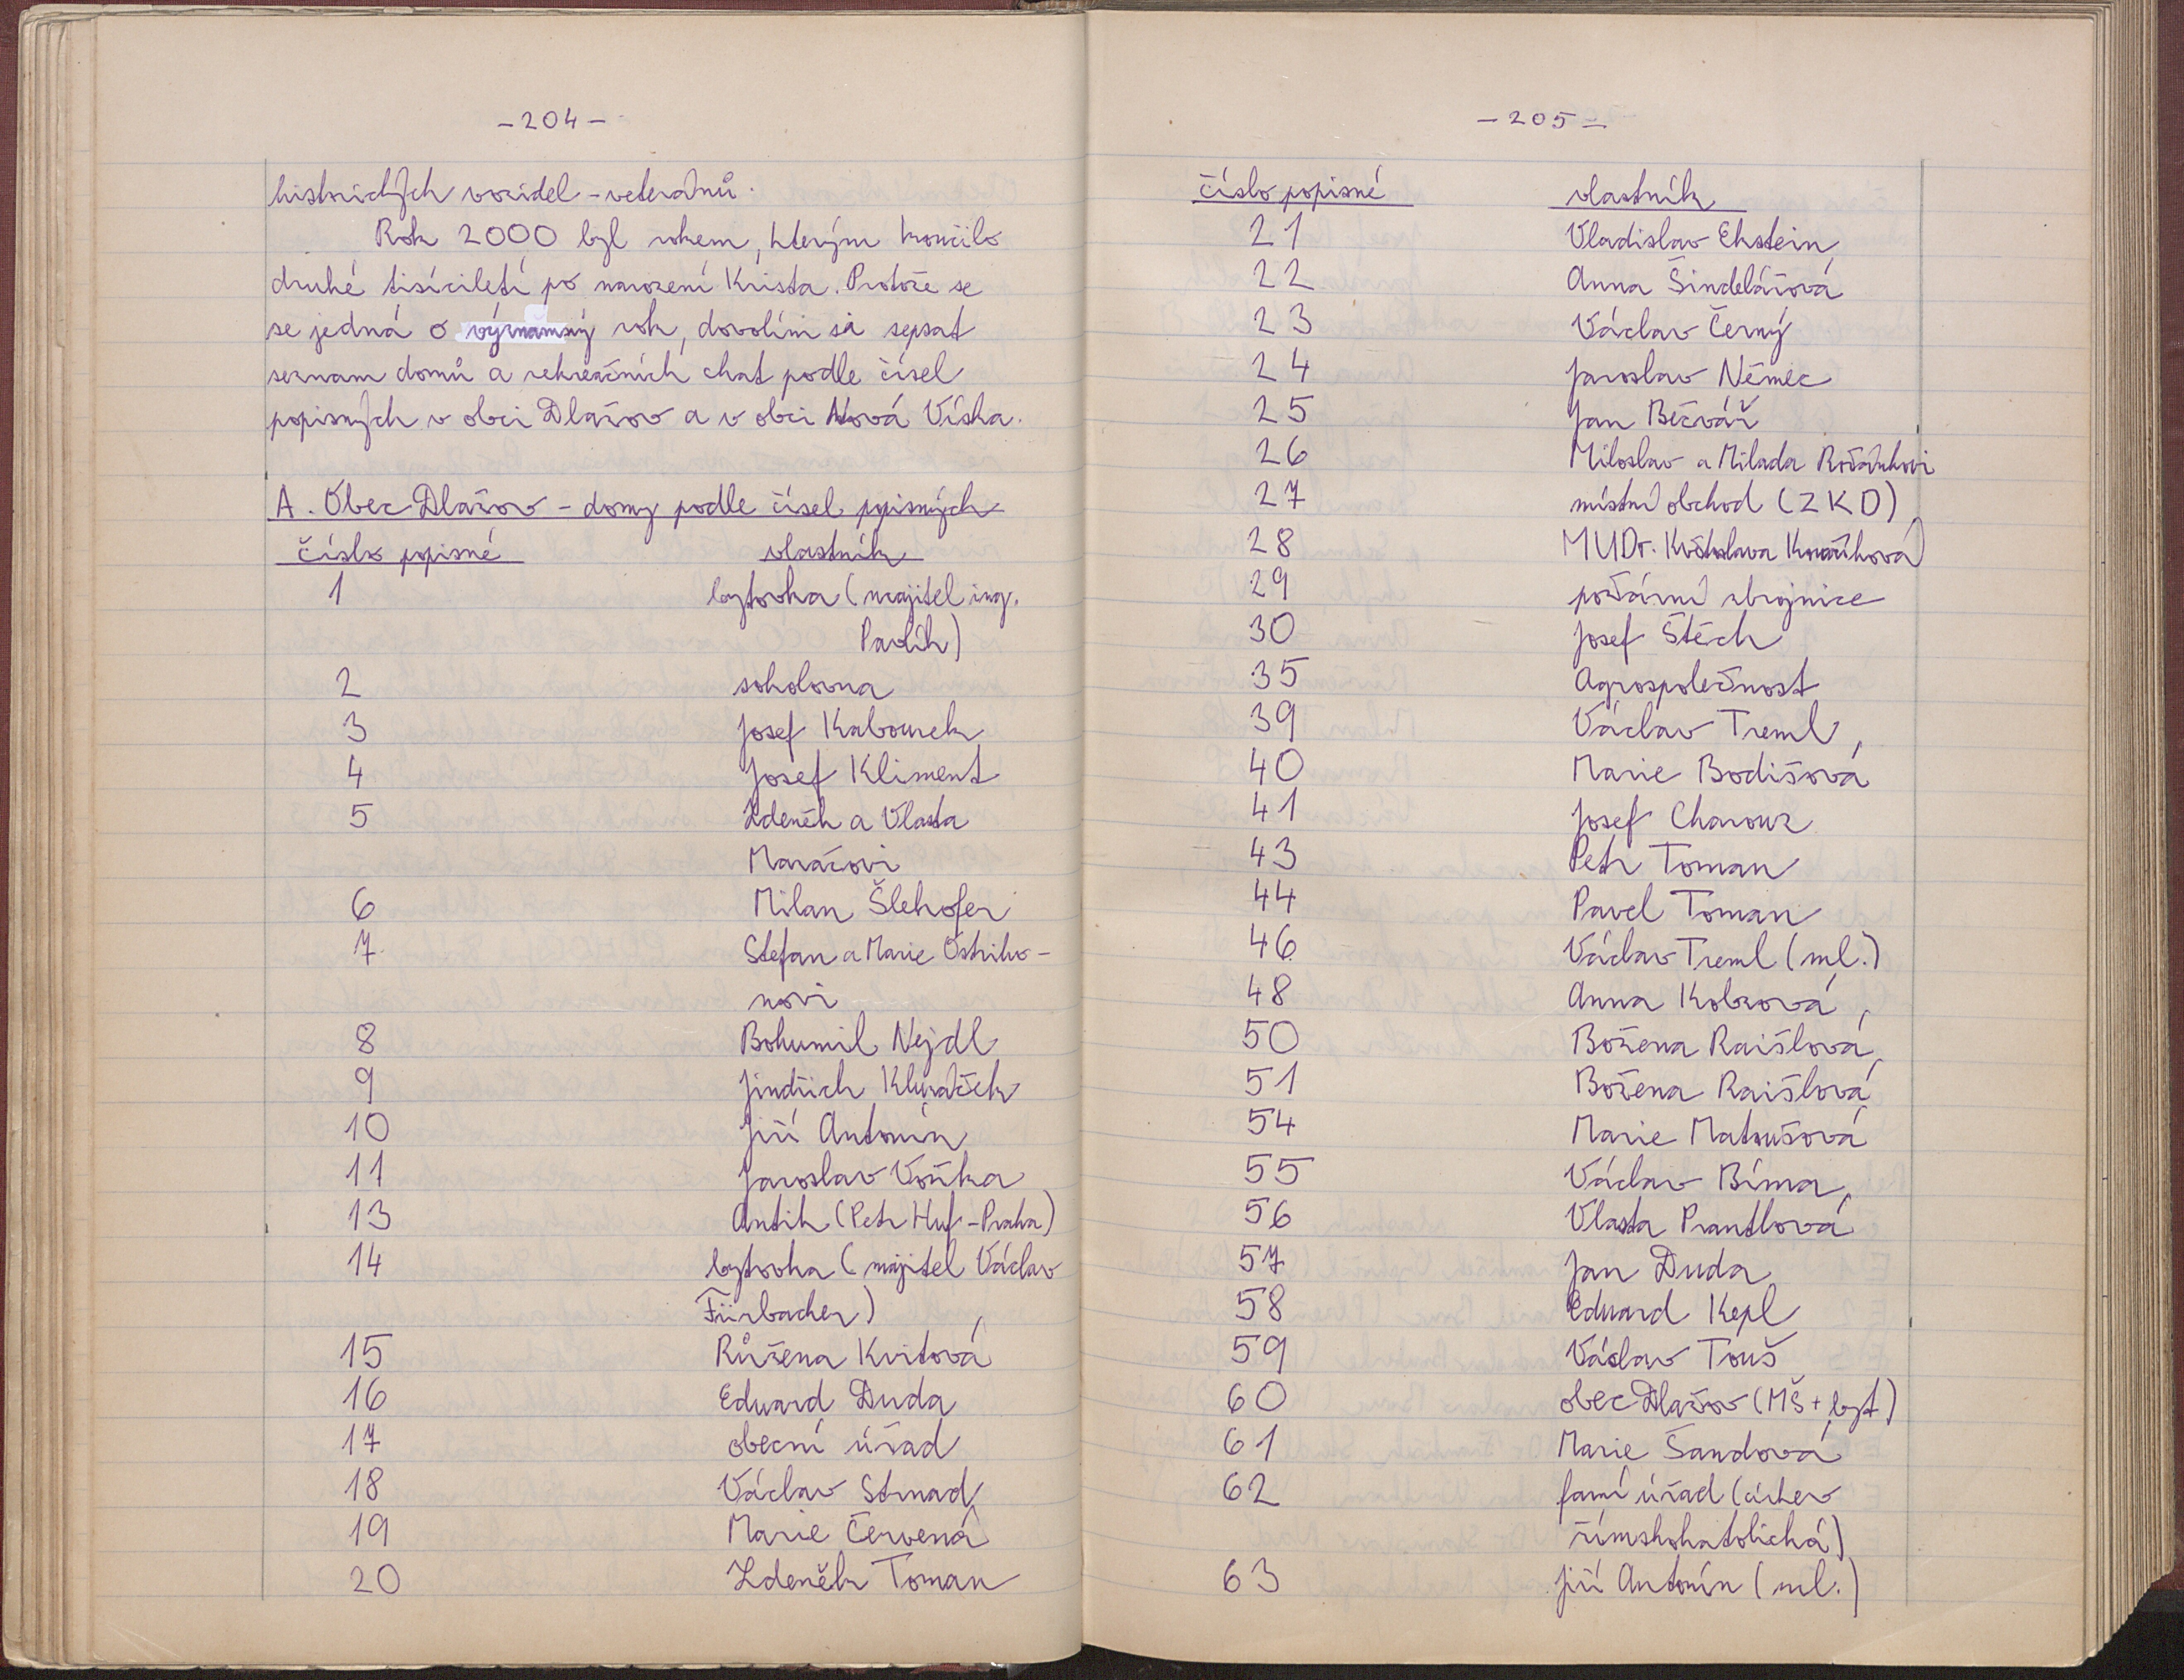 - 204 -
historických vozidel - veteránů.
Rok 2000 byl rokem, kterým končilo
druhé tisíciletí po narození Krista. Protože se
se jedná o významný rok, dovolím si sepsat
seznam domů a rekreačních chat podle čísel
popisných v obci Dlažov a v obci Nová Víska.
A. Obec Dlažov - domy podle čísel popisných
číslo popisné vlastník
1 bytovka (majitel ing.
Pavlík)
2 sokolovna
3 Josef Kabourek
4 Josef Kliment
5 Zdeněk a Vlasta
Maračovi
6 Milan Šlehofer
7 Stefan a Marie Ostriho-
novi
8 Bohumil Nejdl
9 Jindřich
10 Jiří Antonín
11 Jaroslav Voříka
13 Antik (Petr Huf - Praha)
14 bytovka (majitel Václav
Fürbacher)
15 Růžena Kvitová
16 Eduard Duda
17 obecní úřad
18 Václav Strnad
19 Marie Červená
20 Zdeněk Toman
- 205 -
číslo popisné vlastník
21 Vladislav Ekstein
22 Anna Šindelářová
23 Václav Černý
24 Jaroslav Němec
25 Jan Bečvář
26 Miloslav a Milada
27 místní obchod (ZKD)
28 MUDr. Květoslava Kovaříková
29 požární zbrojnice
30 Josef Štěch
35 Agrospolečnost
39 Václav Treml
40 Marie Bodišová
41 Josef Charouz
43 Petr Toman
44 Pavel Toman
46 Václav Treml (ml.)
48 Anna Kobzová
50 Božena Raišlová
51 Božena Raišlová
54 Marie Matoušová
55 Václav Bíma
56 Vlasta Prantlová
57 Jan Duda
58 Eduard Kepl
59 Václav Touš
60 obec Dlažov (MŠ + byt)
61 Marie Šandová
62 farní úřad (církev
římskokatolická)
63 Jiří Antonín (ml.)